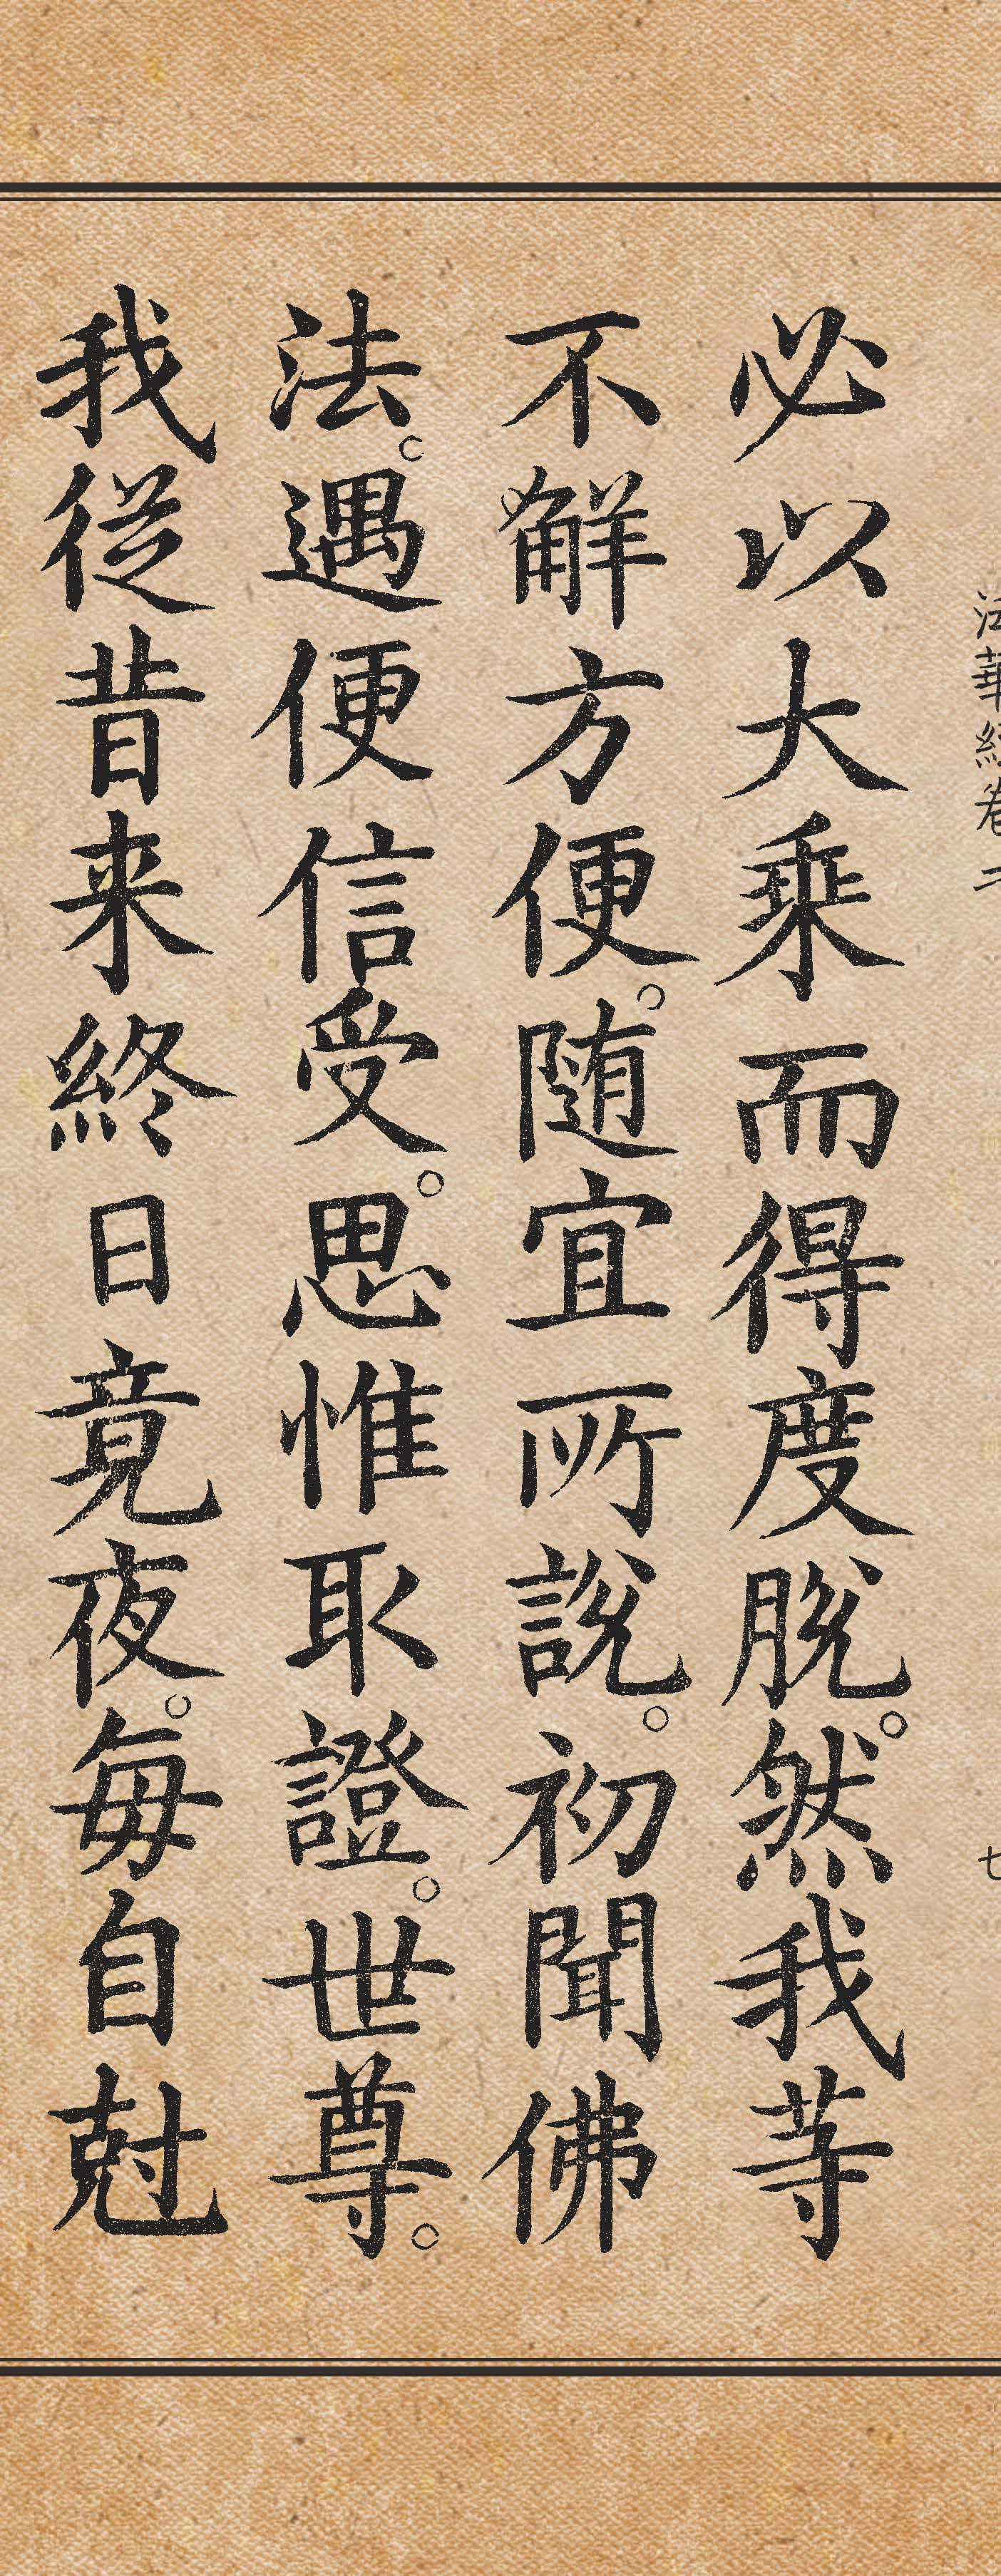 法華經卷二 七
必以大乘而得度脫。然我等
不解方便。随宜所說。初聞佛
法。遇便信受。思惟取證。世尊。
我從昔来終日竟夜。每自尅